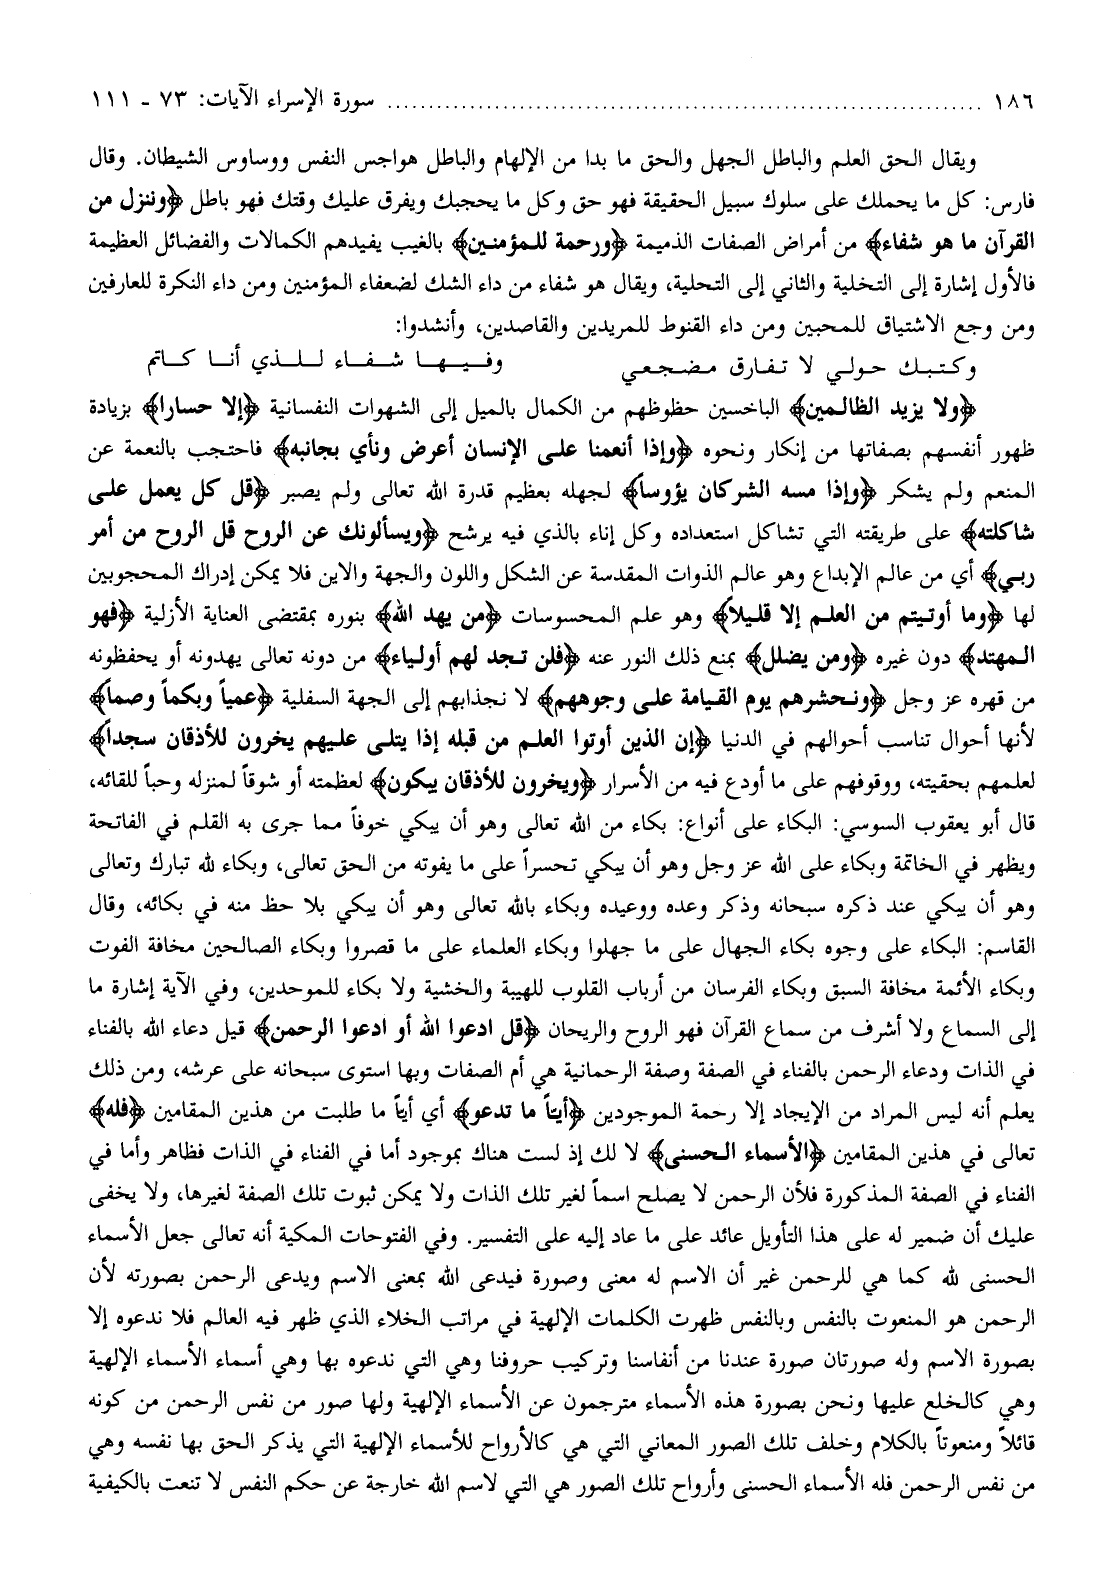 ١٨٦ ........................................ سورة الإسراء الآيات: ٧٣ - ١١١
ويقال الحق العلم والباطل الجهل والحق ما بدا من الإلهام والباطل هواجس النفس ووساوس الشيطان. وقال
فارس: كل ما يحملك على سلوك سبيل الحقيقة فهو حق وكل ما يحجبك ويفرق عليك وقتك فهو باطل ﴿وننزل من
القرآن ما هو شفاء﴾ من أمراض الصفات الذميمة ﴿ورحمة للمؤمنين﴾ بالغيب يفيدهم الكمالات والفضائل العظيمة
فالأول إشارة إلى التخلية والثاني إلى التحلية، ويقال هو شفاء من داء الشك لضعفاء المؤمنين ومن داء النكرة للعارفين
ومن وجع الاشتياق للمحبين ومن داء القنوط للمريدين والقاصدين، وأنشدوا:
وكتبك حولي لا تفارق مضجعي وفيها شفاء للذي أنا كاتم
﴿ولا يزيد الظالمين﴾ الباخسين حظوظهم من الكمال بالميل إلى الشهوات النفسانية ﴿إلا حسارا﴾ بزيادة
ظهور أنفسهم بصفاتها من إنكار ونحوه ﴿وإذا أنعمنا على الإنسان أعرض ونأي بجانبه﴾ فاحتجب بالنعمة عن
المنعم ولم يشكر ﴿وإذا مسه الشركان يؤوساً﴾ لجهله بعظيم قدرة الله تعالى ولم يصبر ﴿قل كل يعمل على
شاكلته﴾ على طريقته التي تشاكل استعداده وكل إناء بالذي فيه يرشح ﴿ويسألونك عن الروح قل الروح من أمر
ربي﴾ أي من عالم الإبداع وهو عالم الذوات المقدسة عن الشكل واللون والجهة والاين فلا يمكن إدراك المحجوبين
لها ﴿وما أوتيتم من العلم إلا قليلاً﴾ وهو علم المحسوسات ﴿من يهد الله﴾ بنوره بمقتضى العناية الأزلية ﴿فهو
المهتد﴾ دون غيره ﴿ومن يضلل﴾ بمنع ذلك النور عنه ﴿فلن تجد لهم أولياء﴾ من دونه تعالى يهدونه أو يحفظونه
من قهره عز وجل ﴿ونحشرهم يوم القيامة على وجوههم﴾ لا نجذابهم إلى الجهة السفلية ﴿عمياً وبكماً وصماً﴾
لأنها أحوال تناسب أحوالهم في الدنيا ﴿إن الذين أوتوا العلم من قبله إذا يتلى عليهم يخرون للأذقان سجداً﴾
لعلمهم بحقيته، ووقوفهم على ما أودع فيه من الأسرار ﴿ويخرون للأذقان يبكون﴾ لعظمته أو شوقاً لمنزله وحباً للقائه،
قال أبو يعقوب السوسي: البكاء على أنواع: بكاء من الله تعالى وهو أن يبكي خوفاً مما جرى به القلم في الفاتحة
ويظهر في الخاتمة وبكاء على الله عز وجل وهو أن يبكي تحسراً على ما يفوته من الحق تعالى، وبكاء لله تبارك وتعالى
وهو أن يبكي عند ذكره سبحانه وذكر وعده ووعيده وبكاء بالله تعالى وهو أن يبكي بلا حظ منه في بكائه، وقال
القاسم: البكاء على وجوه بكاء الجهال على ما جهلوا وبكاء العلماء على ما قصروا وبكاء الصالحين مخافة الفوت
وبكاء الأئمة مخافة السبق وبكاء الفرسان من أرباب القلوب للهيبة والخشية ولا بكاء للموحدين، وفي الآية إشارة ما
إلى السماع ولا أشرف من سماع القرآن فهو الروح والريحان ﴿قل ادعوا الله أو ادعوا الرحمن﴾ قيل دعاء الله بالفناء
في الذات ودعاء الرحمن بالفناء في الصفة وصفة الرحمانية هي أم الصفات وبها استوى سبحانه على عرشه، ومن ذلك
يعلم أنه ليس المراد من الإيجاد إلا رحمة الموجودين ﴿أيّاً ما تدعو﴾ أي أياً ما طلبت من هذين المقامين ﴿فله﴾
تعالى في هذين المقامين ﴿الأسماء الحسنى﴾ لا لك إذ لست هناك بموجود أما في الفناء في الذات فظاهر وأما في
الفناء في الصفة المذكورة فلأن الرحمن لا يصلح اسماً لغير تلك الذات ولا يمكن ثبوت تلك الصفة لغيرها، ولا يخفى
عليك أن ضمير له على هذا التأويل عائد على ما عاد إليه على التفسير. وفي الفتوحات المكية أنه تعالى جعل الأسماء
الحسنى لله كما هي للرحمن غير أن الاسم له معنى وصورة فيدعى الله بمعنى الاسم ويدعى الرحمن بصورته لأن
الرحمن هو المنعوت بالنفس وبالنفس ظهرت الكلمات الإلهية في مراتب الخلاء الذي ظهر فيه العالم فلا ندعوه إلا
بصورة الاسم وله صورتان صورة عندنا من أنفاسنا وتركيب حروفنا وهي التي ندعوه بها وهي أسماء الأسماء الإلهية
وهي كالخلع عليها ونحن بصورة هذه الأسماء مترجمون عن الأسماء الإلهية ولها صور من نفس الرحمن من كونه
قائلاً ومنعوتاً بالكلام وخلف تلك الصور المعاني التي هي كالأرواح للأسماء الإلهية التي يذكر الحق بها نفسه وهي
من نفس الرحمن فله الأسماء الحسنى وأرواح تلك الصور هي التي لاسم الله خارجة عن حكم النفس لا تنعت بالكيفية